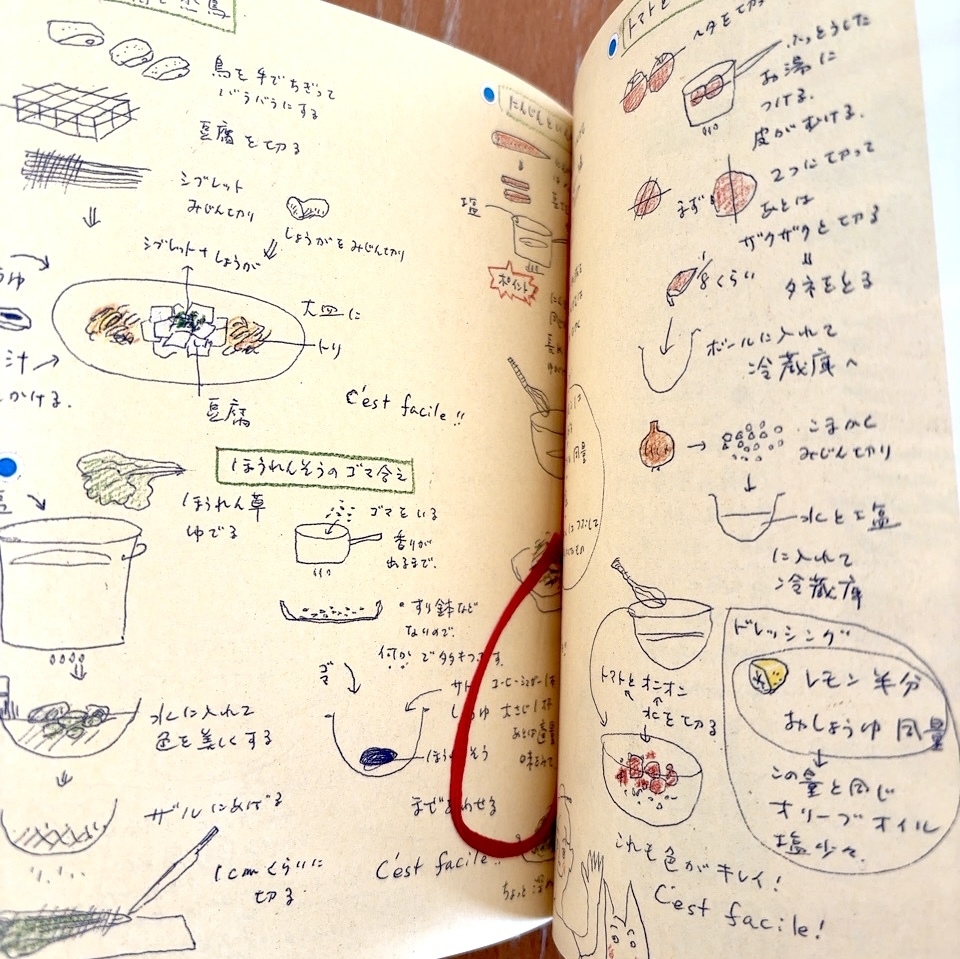 鳥を手でちぎって
バラバラにする
豆腐を切る
シブレット
みじん切り
しょうがをみじん切り
シブレット+しょうが
大皿に
トリ
豆腐
汁
かける.
C'est facile!!
ほうれんそうのゴマ合え
ほうれん草
ゆでる
ゴマをいる
香りが
出るまで.
すり鉢など
ないので.
何かでタタキつぶす.
水に入れて
色を美しくする
ゴマ
大さじ1杯
味をみて
まぜあわせる
ザルにあげる
1cmくらいに
切る
C'est facile!!
にんじんと
塩
ポイント
トマトと
ヘタを切る
ふっとうした
お湯に
つける.
皮がむける.
まず
2つに切って
あとは
ザクザクと切る
タネをとる
8くらい
ボールに入れて
冷蔵庫へ
こまかく
みじん切り
水と塩
に入れて
冷蔵庫
トマトとオニオン
水を切る
ドレッシング
レモン半分
おしょうゆ同量
この量と同じ
オリーブオイル
塩少々.
これも色がキレイ!
C'est facile!